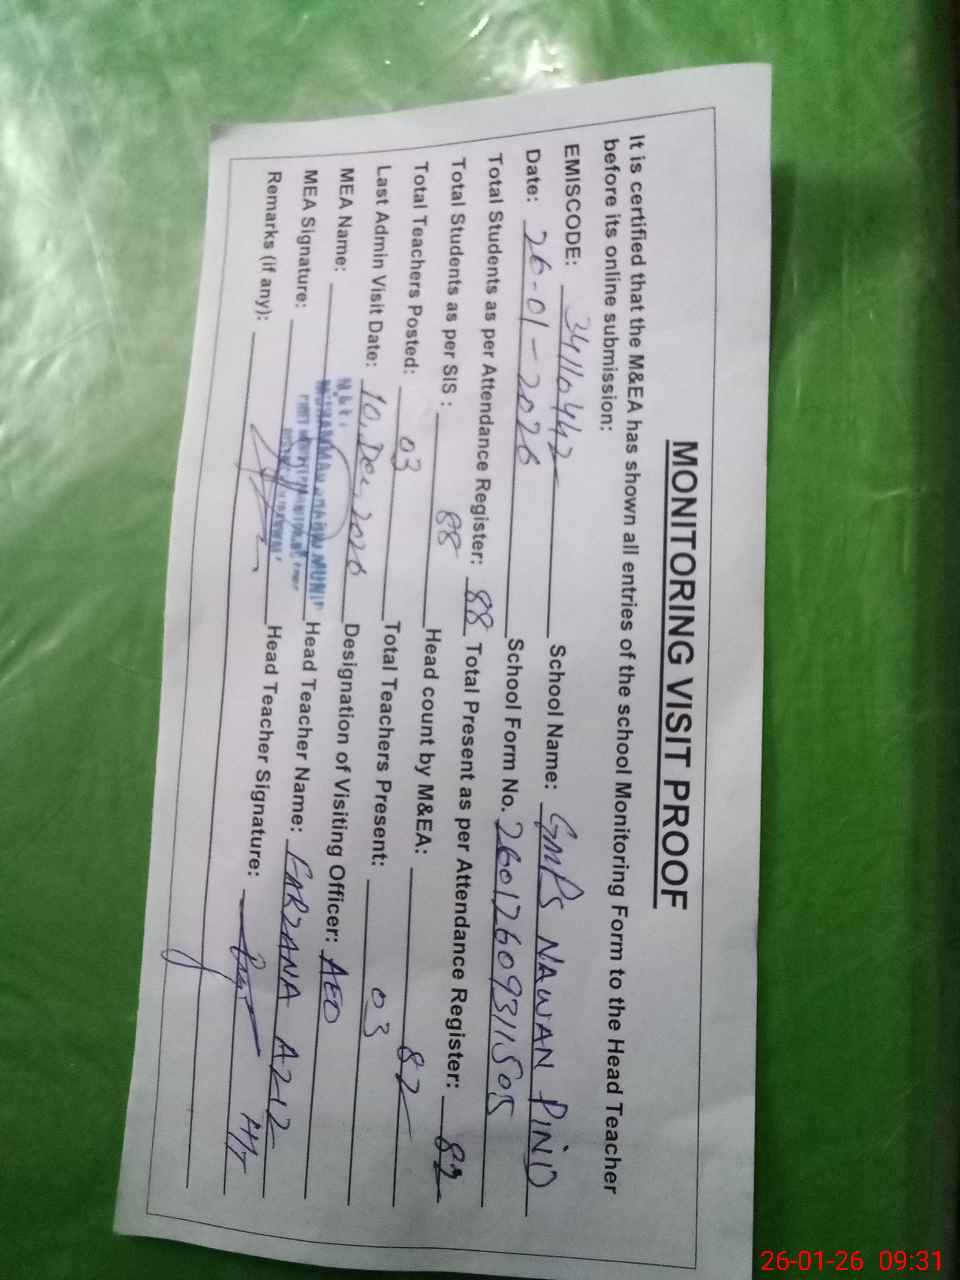 MONITORING VISIT PROOF
It is certified that the M&EA has shown all entries of the school Monitoring Form to the Head Teacher
before its online submission:
EMISCODE: 34110442 School Name: GMPS NAWAN PIND
Date: 26-01-2026 School Form No. 2601260931150S
Total Students as per Attendance Register: 88 Total Present as per Attendance Register: 82
Total Students as per SIS : 88 Head count by M&EA: 82
Total Teachers Posted: 03 Total Teachers Present: 03
Last Admin Visit Date: 10, Dec, 2026 Designation of Visiting Officer: AEO
MEA Name: Head Teacher Name: FARZANA AZIZ
MEA Signature: Head Teacher Signature:
Remarks (if any):
26-01-26 09:31